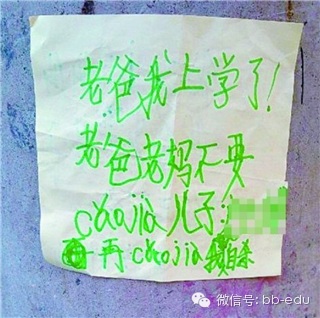 老爸我上学了!
老爸老妈不要
chaojia儿子:
再chaojia我自杀
微信号: bb-edu